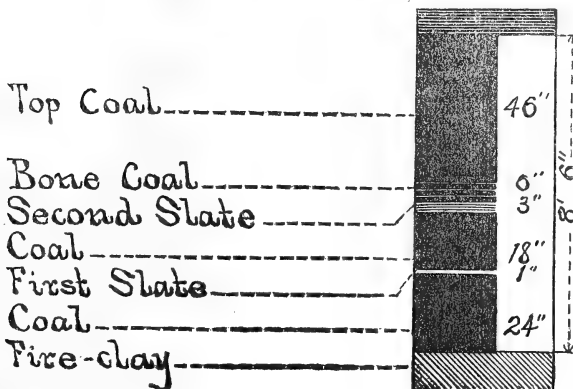 Top Coal 46"
Bone Coal 6"
Second Slate 3"
Coal 18"
First Slate 1"
Coal 24"
Fire-clay
8' 6"